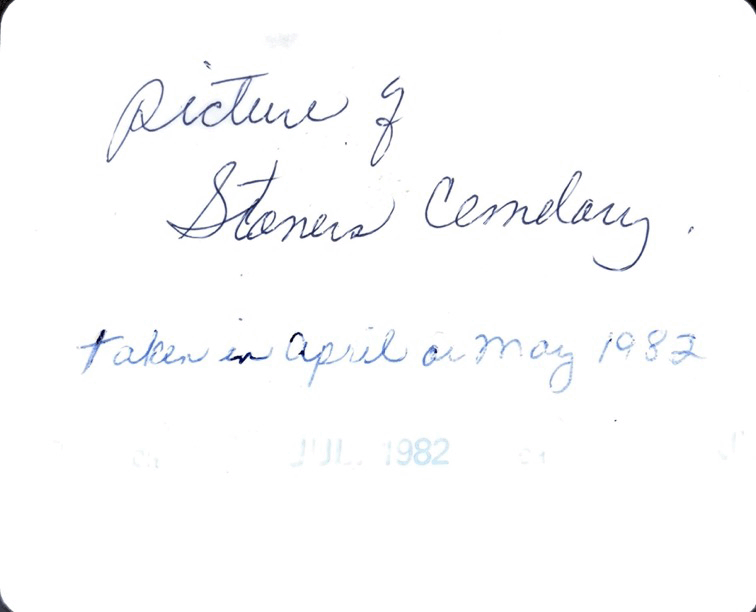 picture of
Stoners Cemelary.
taken in April or May 1982
JUL. 1982